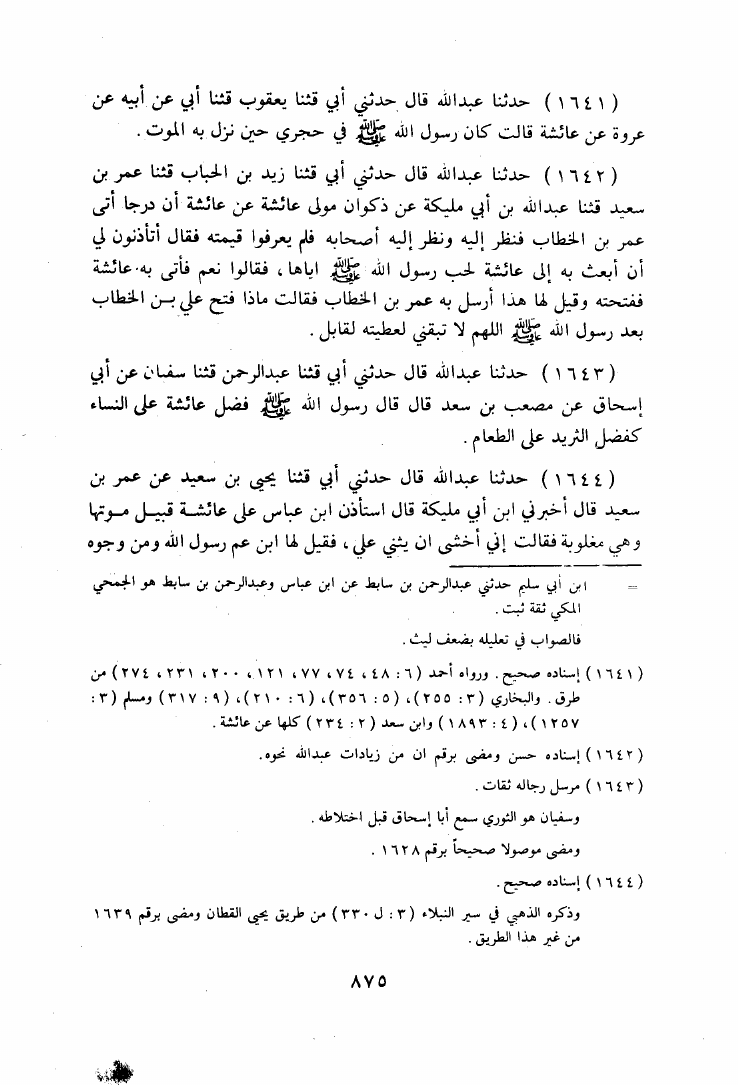 (١٦٤١) حدثنا عبدالله قال حدثني أبي قثنا يعقوب قثنا أبي عن أبيه عن
عروة عن عائشة قالت كان رسول الله ﷺ في حجري حين نزل به الموت .
(١٦٤٢) حدثنا عبدالله قال حدثني أبي قثنا زيد بن الحباب قثنا عمر بن
سعيد قثنا عبدالله بن أبي مليكة عن ذكوان مولى عائشة عن عائشة أن درجا أتى
عمر بن الخطاب فنظر إليه ونظر إليه أصحابه فلم يعرفوا قيمته فقال أتأذنون لي
أن أبعث به إلى عائشة لحب رسول الله ﷺ اياها ، فقالوا نعم فأتى به عائشة
ففتحته وقيل لها هذا أرسل به عمر بن الخطاب فقالت ماذا فتح علي بـن الخطاب
بعد رسول الله ﷺ اللهم لا تبقني لعطيته لقابل .
(١٦٤٣) حدثنا عبدالله قال حدثني أبي قثنا عبدالرحمن قثنا سفيان عن أبي
إسحاق عن مصعب بن سعد قال قال رسول الله ﷺ فضل عائشة على النساء
كفضل الثريد على الطعام .
(١٦٤٤) حدثنا عبدالله قال حدثني أبي قثنا يحيى بن سعيد عن عمر بن
سعيد قال أخبرني ابن أبي مليكة قال استأذن ابن عباس على عائشـة قبيـل مـوتها
وهي مغلوبة فقالت إني أخشى ان يثني علي ، فقيل لها ابن عم رسول الله ومن وجوه
= ابن أبي سليم حدثني عبدالرحمن بن سابط عن ابن عباس وعبدالرحمن بن سابط هو الجمحي
المكي ثقة ثبت .
فالصواب في تعليله بضعف ليث .
(١٦٤١) إسناده صحيح . ورواه أحمد (٦ : ٤٨ ، ٧٤ ، ٧٧ ، ١٢١ ، ٢٠٠ ، ٢٣١ ، ٢٧٤) من
طرق . والبخاري (٣ : ٢٥٥) ، (٥ : ٣٥٦) ، (٦ : ٢١٠) ، (٩ : ٣١٧) ومسلم (٣ :
١٢٥٧) ، (٤ : ١٨٩٣) وابن سعد (٢ : ٢٣٤) كلها عن عائشة .
(١٦٤٢) إسناده حسن ومضى برقم ان من زيادات عبدالله نحوه .
(١٦٤٣) مرسل رجاله ثقات .
وسفيان هو الثوري سمع أبا إسحاق قبل اختلاطه .
ومضى موصولا صحيحاً برقم ١٦٢٨ .
(١٦٤٤) إسناده صحيح .
وذكره الذهبي في سير النبلاء (٣ : ل ٣٣٠) من طريق يحيى القطان ومضى برقم ١٦٣٩
من غير هذا الطريق .
٨٧٥